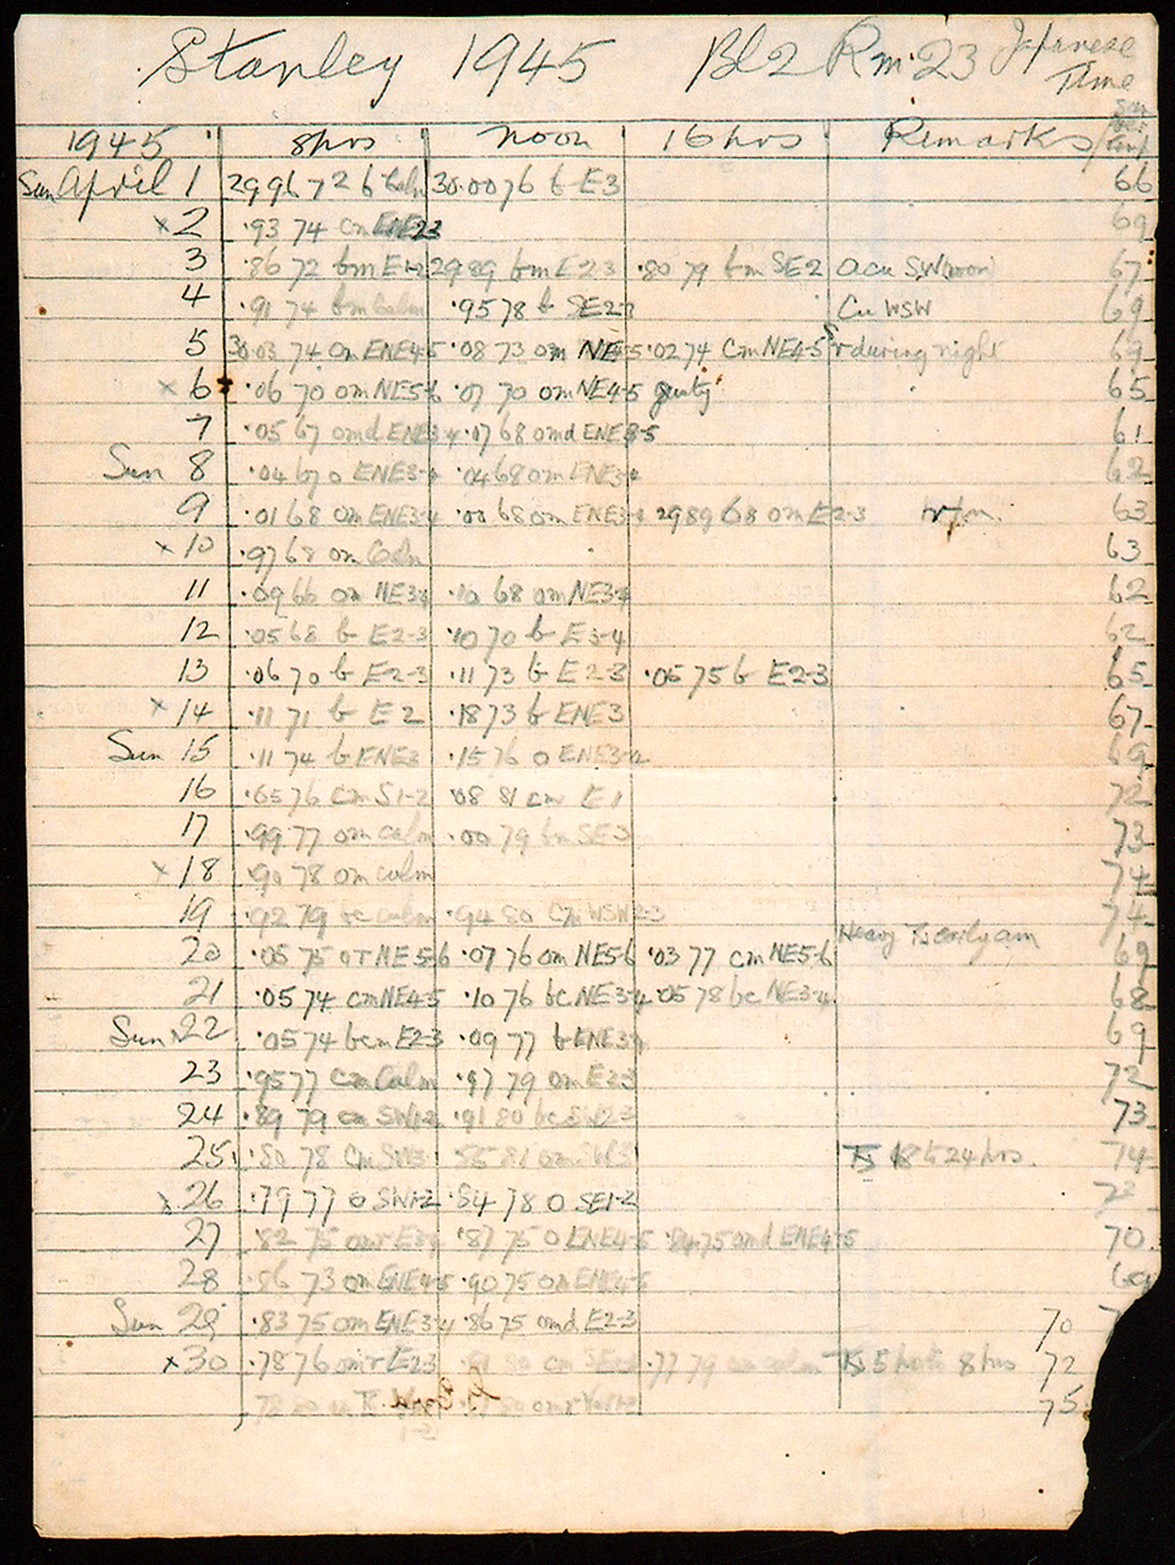 Stanley 1945 Bl 2 Rm. 23 Japanese
Time
1945 8hrs noon 16 hrs Remarks
Sun April 1 29.96 72 b Calm 30.00 76 b E3 66
x 2 .93 74 cm ENE23 69
3 .86 72 bm E1-2 29.89 bm E2-3 .80 79 bm SE2 acu SW (noon) 67
4 .91 74 bm Calm .95 78 b SE2-3 Cu WSW 69
5 30.03 74 om ENE4-5 .08 73 om NE4-5 .02 74 cm NE4-5 r during night 69
x 6 .06 70 om NE5-6 .07 70 om NE4-5 gusty 65
7 .05 67 omd ENE3-4 .07 68 omd ENE3-5 61
Sun 8 .04 67 o ENE3-4 .04 68 om ENE3-4 62
9 .01 68 om ENE3-4 .00 68 om ENE3-4 29.89 68 om E2-3 63
x 10 .97 68 om Calm 63
11 .09 66 om NE3-4 .10 68 om NE3-4 62
12 .05 68 b E2-3 .10 70 b E3-4 62
13 .06 70 b E2-3 .11 73 b E2-3 .06 75 b E2-3 65
x 14 .11 71 b E2 .18 73 b ENE3 67
Sun 15 .11 74 b ENE3 .15 76 o ENE3-4 69
16 76 cm S1-2 .08 81 cm E1 72
17 .99 77 om calm .00 79 bm SE3 73
x 18 .90 78 om calm 74
19 .92 79 bc calm .94 80 cm WSW2-3 74
Heavy Ts early am
20 .05 75 orT NE5-6 .07 76 om NE5-6 .03 77 cm NE5-6 69
21 .05 74 cm NE4-5 .10 76 bc NE3-4 .05 78 bc NE3-4 68
Sun x 22 .05 74 bcm E2-3 .09 77 b ENE3 69
23 .95 77 cm Calm .97 79 om E2-3 72
24 .89 79 cm SW1-2 .91 80 bc SW2-3 73
25 .80 78 cm SW3 81 om Ts 18 to 24 hrs. 74
x 26 .79 77 o SW1-2 .84 78 o SE1-2
27 .82 75 omr E3-4 .87 75 o ENE4-5 .84 75 omd ENE4-5 70
28 .86 73 om ENE4-5 .90 75 om ENE4-5 69
Sun 29 .83 75 om ENE3-4 .86 75 omd E2-3 70
x 30 .78 76 omr E2-3 80 cm .77 79 om calm Ts 5 8 hrs 72
75